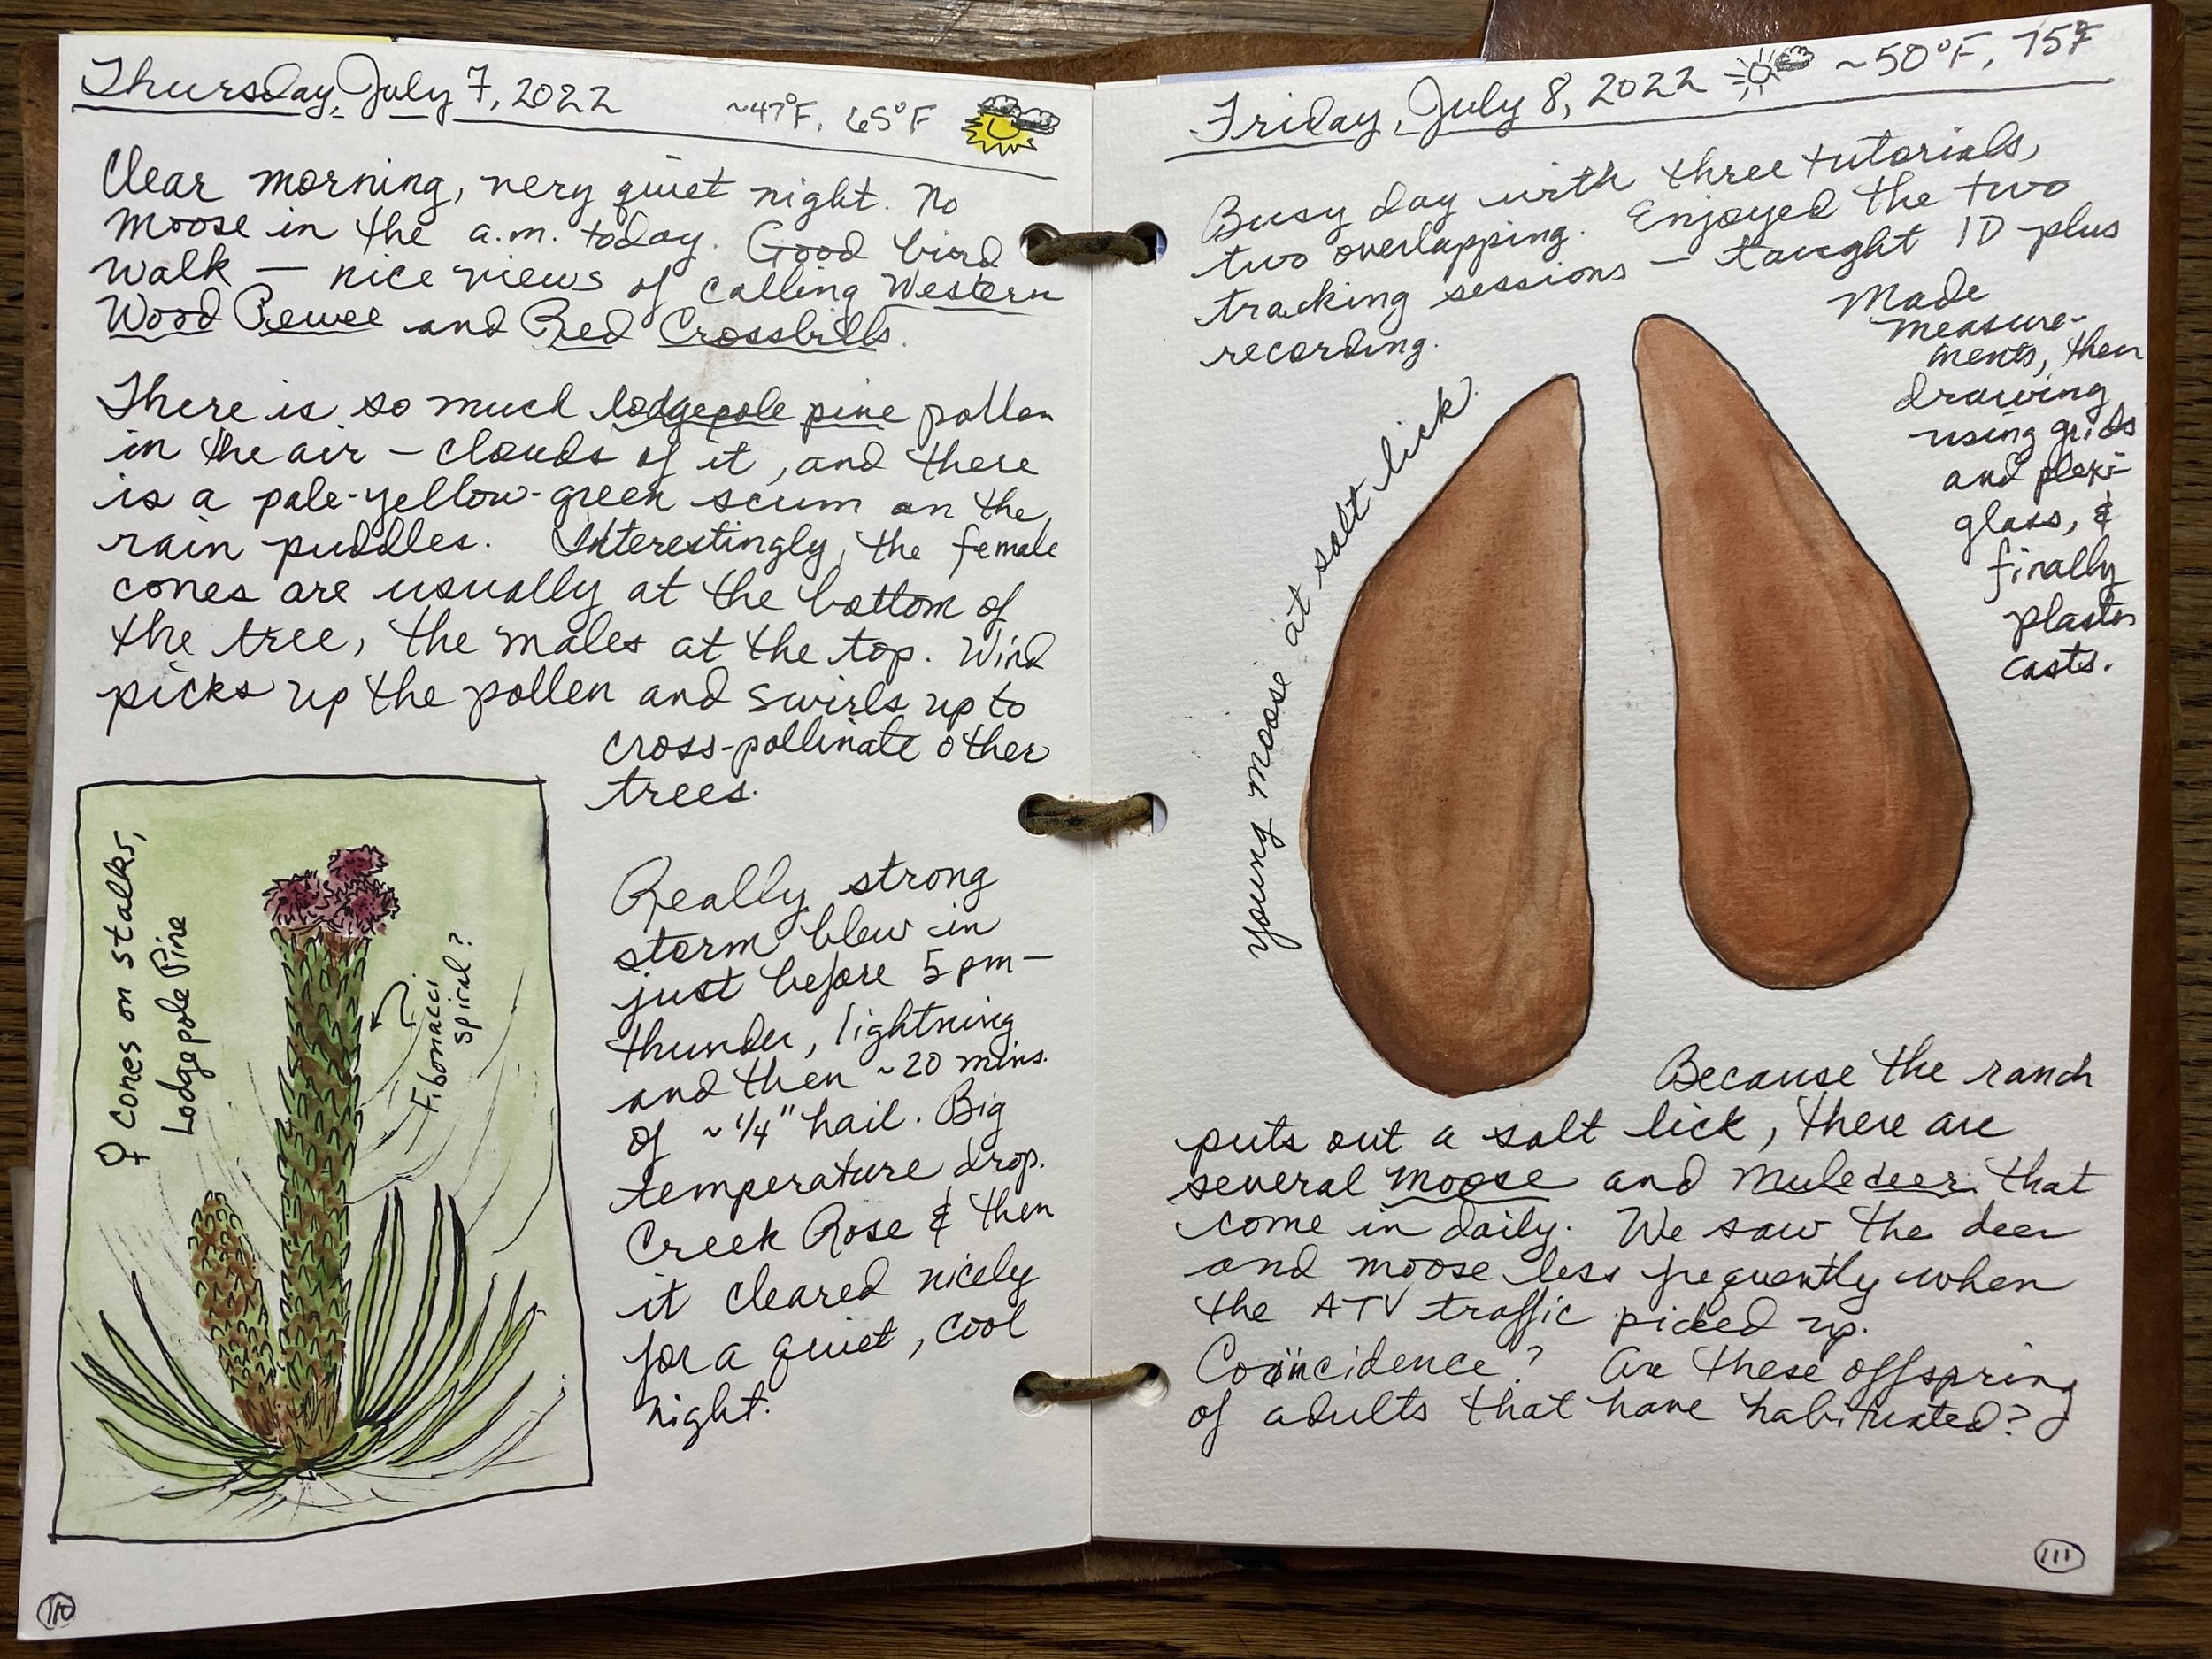 Thursday, July 7, 2022
~47°F, 65°F
Clear morning, very quiet night. No
moose in the a.m. today. Good bird
walk — nice views of calling Western
Wood Pewee and Red Crossbills.
There is so much lodgepole pine pollen
in the air – clouds of it, and there
is a pale-yellow-green scum on the
rain puddles. Interestingly, the female
cones are usually at the bottom of
the tree, the males at the top. Wind
picks up the pollen and swirls up to
cross-pollinate other
trees.
♀ cones on stalks,
Lodgepole Pine
Fibonacci
spiral?
Really strong
storm blew in
just before 5 pm —
thunder, lightning
and then ~20 mins.
of ~1/4" hail. Big
temperature drop.
Creek Rose & then
it cleared nicely
for a quiet, cool
night.
110
Friday, July 8, 2022
~50°F, 75°F
Busy day with three tutorials,
two overlapping. Enjoyed the two
tracking sessions — taught ID plus
recording.
Made
measure-
ments, then
drawing
using grids
and plexi-
glass, &
finally
plaster
casts.
young moose at salt lick.
Because the ranch
puts out a salt lick, there are
several moose and mule deer that
come in daily. We saw the deer
and moose less frequently when
the ATV traffic picked up.
Coïncidence? Are these offspring
of adults that have habituated?
111